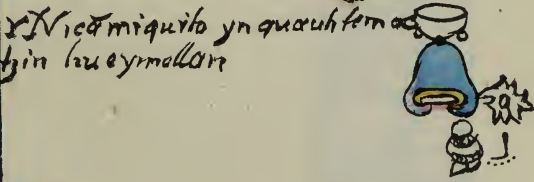 yNicã miquito yn quauhtemo
tzin hueymollan